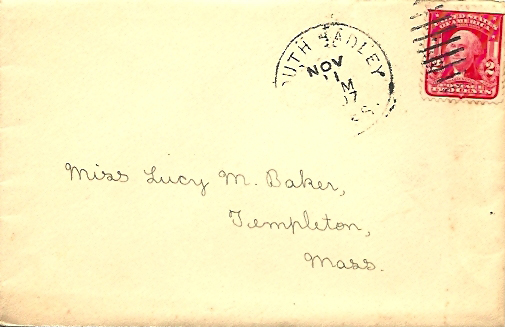 UTH HADLEY
NOV
11
M
07
SS.
UNITED STATES
OF AMERICA
2
POSTAGE
TWO CENTS
Miss Lucy M. Baker,
Templeton,
Mass.